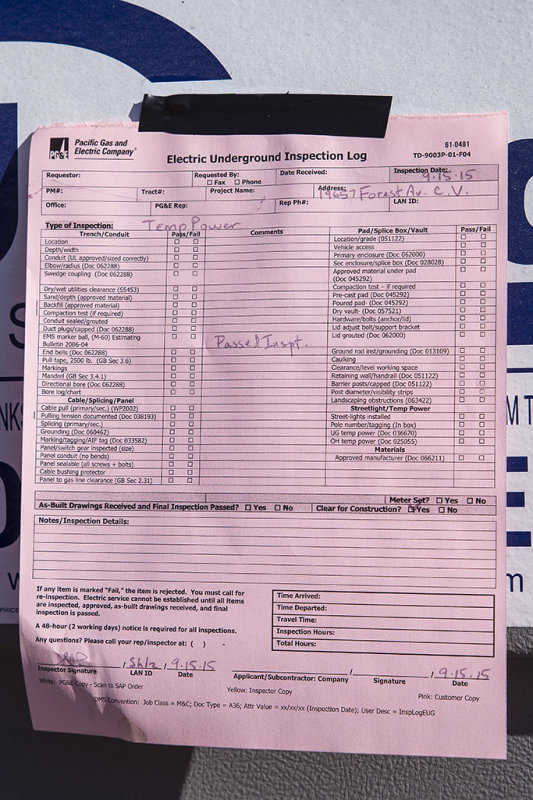 Pacific Gas and
Electric Company®
PG&E
61-0481
TD-9003P-01-F04
Electric Underground Inspection Log
Requestor:
Requested By:
Fax Phone
Date Received:
Inspection Date:
9.15.15
PM#:
Tract#:
Project Name:
Address:
19657 Forest Av. C.V.
Office:
PG&E Rep:
Rep Ph#:
LAN ID:
Type of Inspection: Temp Power
Trench/Conduit Pass/Fail
Location
Depth/width
Conduit (UL approved/sized correctly)
Elbow/radius (Doc 062288)
Swedge coupling (Doc 062288)
Dry/wet utilities clearance (S5453)
Sand/depth (approved material)
Backfill (approved material)
Compaction test (if required)
Conduit sealed/grouted
Duct plugs/capped (Doc 062288)
EMS marker ball, (M-60) Estimating
Bulletin 2006-04
End bells (Doc 062288)
Pull tape, 2500 lb. (GB Sec 3.6)
Markings
Mandrel (GB Sec 3.4.1)
Directional bore (Doc 062288)
Bore log/chart
Cable/Splicing/Panel
Cable pull (primary/sec.) (WP2002)
Pulling tension documented (Doc 038193)
Splicing (primary/sec.)
Grounding (Doc 060462)
Marking/tagging/AIP tag (Doc 033582)
Panel/switch gear inspected (size)
Panel conduit (no bends)
Panel sealable (all screws + bolts)
Cable bushing protector
Panel to gas line clearance (GB Sec 2.31)
Comments
Passed Inspt.
Pad/Splice Box/Vault Pass/Fail
Location/grade (051122)
Vehicle access
Primary enclosure (Doc 062000)
Sec enclosure/splice box (Doc 028028)
Approved material under pad
(Doc 045292)
Compaction test – if required
Pre-cast pad (Doc 045292)
Poured pad (Doc 045292)
Dry vault- (Doc 057521)
Hardware/bolts (anchor/lid)
Lid adjust bolt/support bracket
Lid grouted (Doc 062000)
Ground rod inst/grounding (Doc 013109)
Caulking
Clearance/level working space
Retaining wall/handrail (Doc 051122)
Barrier posts/capped (Doc 051122)
Post diameter/visibility strips
Landscaping obstructions (063422)
Streetlight/Temp Power
Street-lights installed
Pole number/tagging (In box)
UG temp power (Doc 036670)
OH temp power (Doc 025055)
Materials
Approved manufacturer (Doc 066211)
Meter Set? Yes No
As-Built Drawings Received and Final Inspection Passed? Yes No
Clear for Construction? Yes No
Notes/Inspection Details:
If any item is marked "Fail," the item is rejected. You must call for
re-inspection. Electric service cannot be established until all items
are inspected, approved, as-built drawings received, and final
inspection is passed.
A 48-hour (2 working days) notice is required for all inspections.
Any questions? Please call your rep/inspector at: ( ) -
Time Arrived:
Time Departed:
Travel Time:
Inspection Hours:
Total Hours:
9.15.15
Inspector Signature / LAN ID / Date
Applicant/Subcontractor: Company / Signature / Date
9.15.15
White: PG&E Copy - Scan to SAP Order
Yellow: Inspector Copy
Pink: Customer Copy
DMS Convention: Job Class = M&C; Doc Type = A36; Attr Value = xx/xx/xx (Inspection Date); User Desc = InspLogEUG